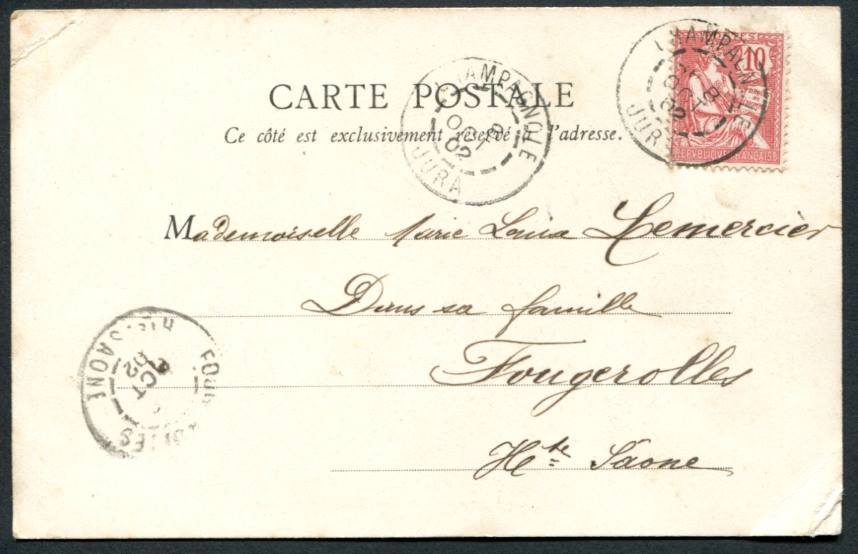 CARTE POSTALE
Ce côté est exclusivement réservé à l'adresse.
CHAMPAGNOLE
OCT
02
JURA
CHAMPAGNOLE
OCT
02
JURA
10
REPUBLIQUE FRANÇAISE
Mademoiselle Marie Louise Lemercier
Dans sa famille
Fougerolles
Hte Saone
FOUGEROLLES
OCT
02
HTE SAONE